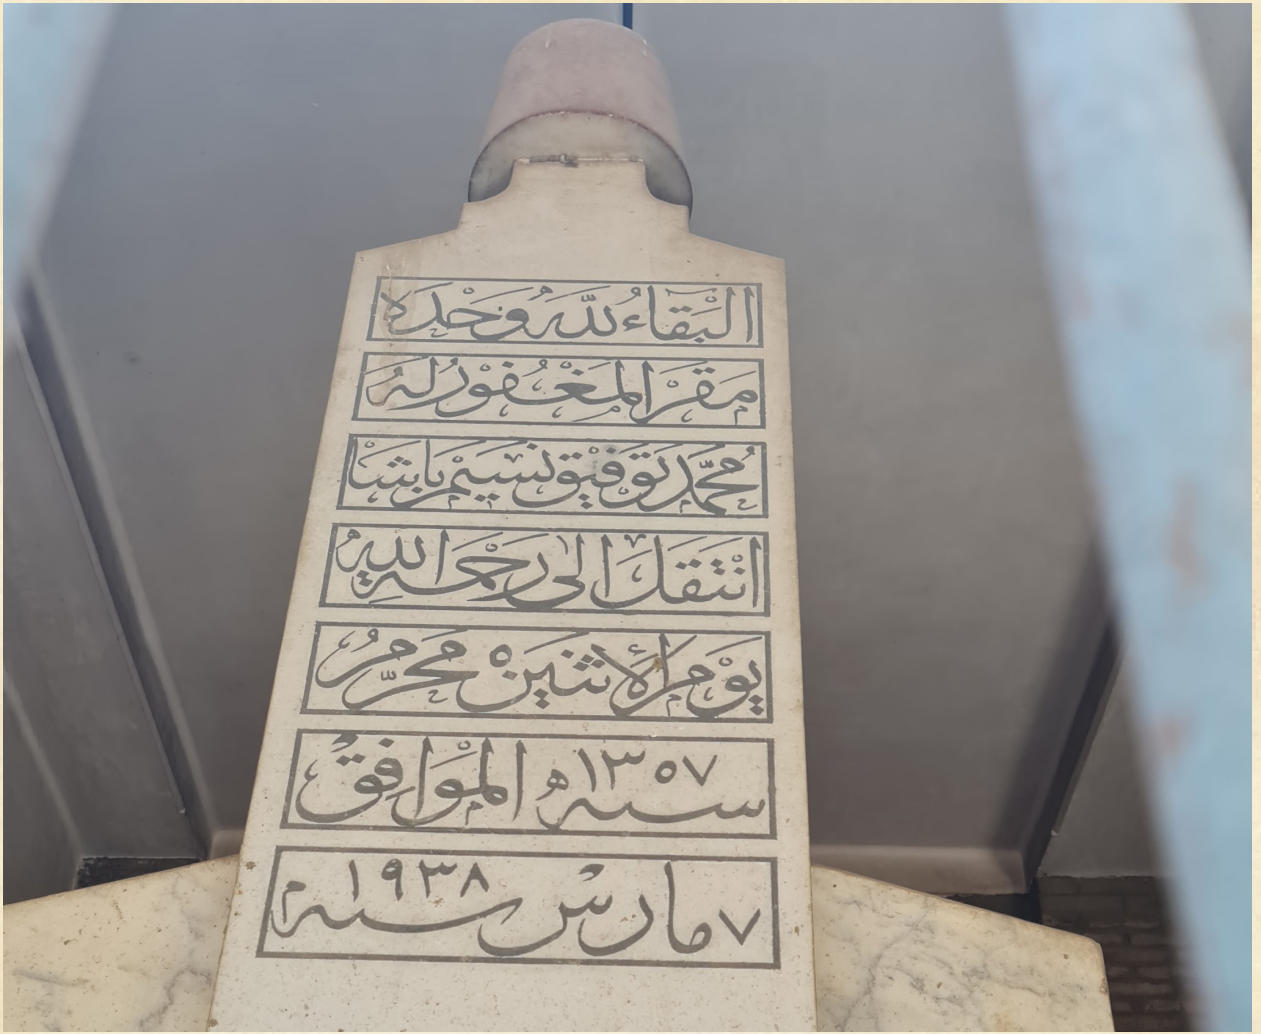 البقاء لله وحده
مقر المغفور له
محمد توفيق نسيم باشا
انتقل الى رحمة الله
يوم الاثنين ٥ محرم
سنة ١٣٥٧ ه الموافق
٧ مارس سنة ١٩٣٨ م